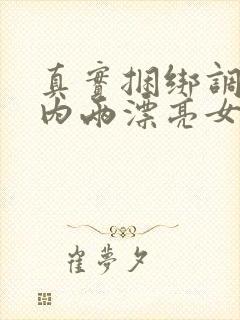 真實捆綁調
內兩漂亮女
崔夢夕